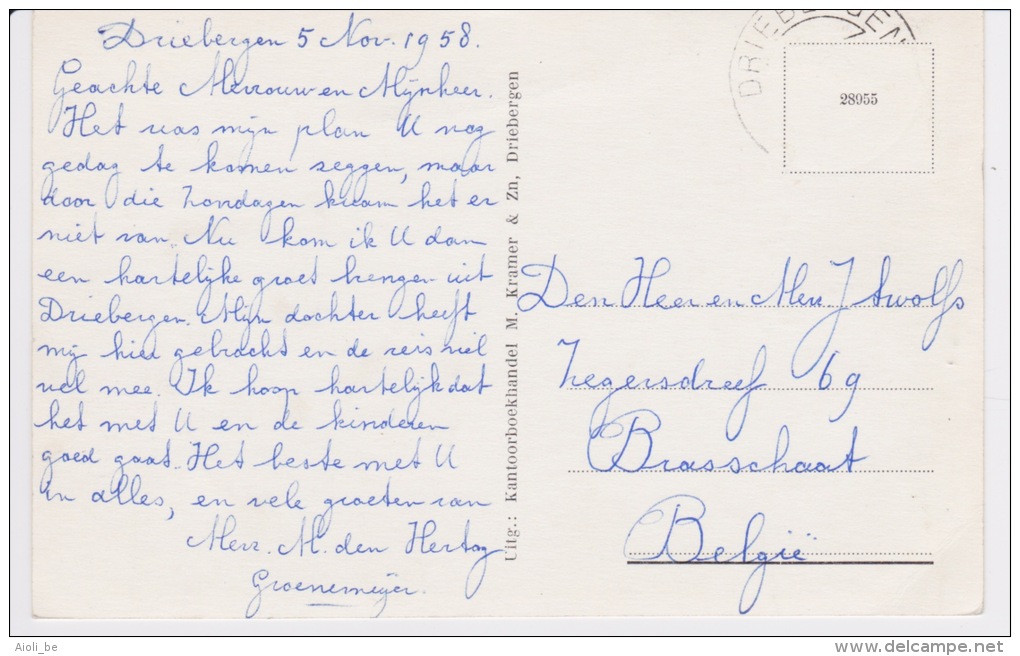 Driebergen 5 Nov. 1958.
Geachte Mevrouw en Mijnheer.
Het was mijn plan U nog
gedag te komen seggen, maar
door die Zondagen kwam het er
niet van. Nu kom ik U dan
een hartelijke groet brengen uit
Driebergen. Mijn dochter heeft
mij hier gebracht en de reis viel
vel mee. Ik hoop hartelijk dat
het met U en de kinderen
goed gaat. Het beste met U
in alles, en vele groeten van
Mevr. M. den Hertog
Groenemeijer.
Uitg.: Kantoorboekhandel M. Kramer & Zn, Driebergen
DRIEBERGEN
28955
Den Heer en Mevr J
Zegersdreef 69
Brasschaat
België
Aioli_be
www.delcampe.net